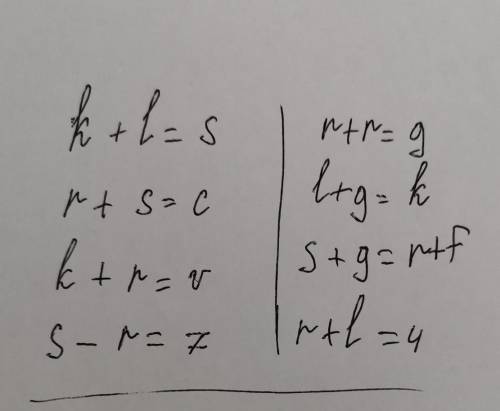 k + l = s
r + s = c
k + r = v
s - r = z
r + r = g
l + g = k
s + g = r + f
r + l = 4